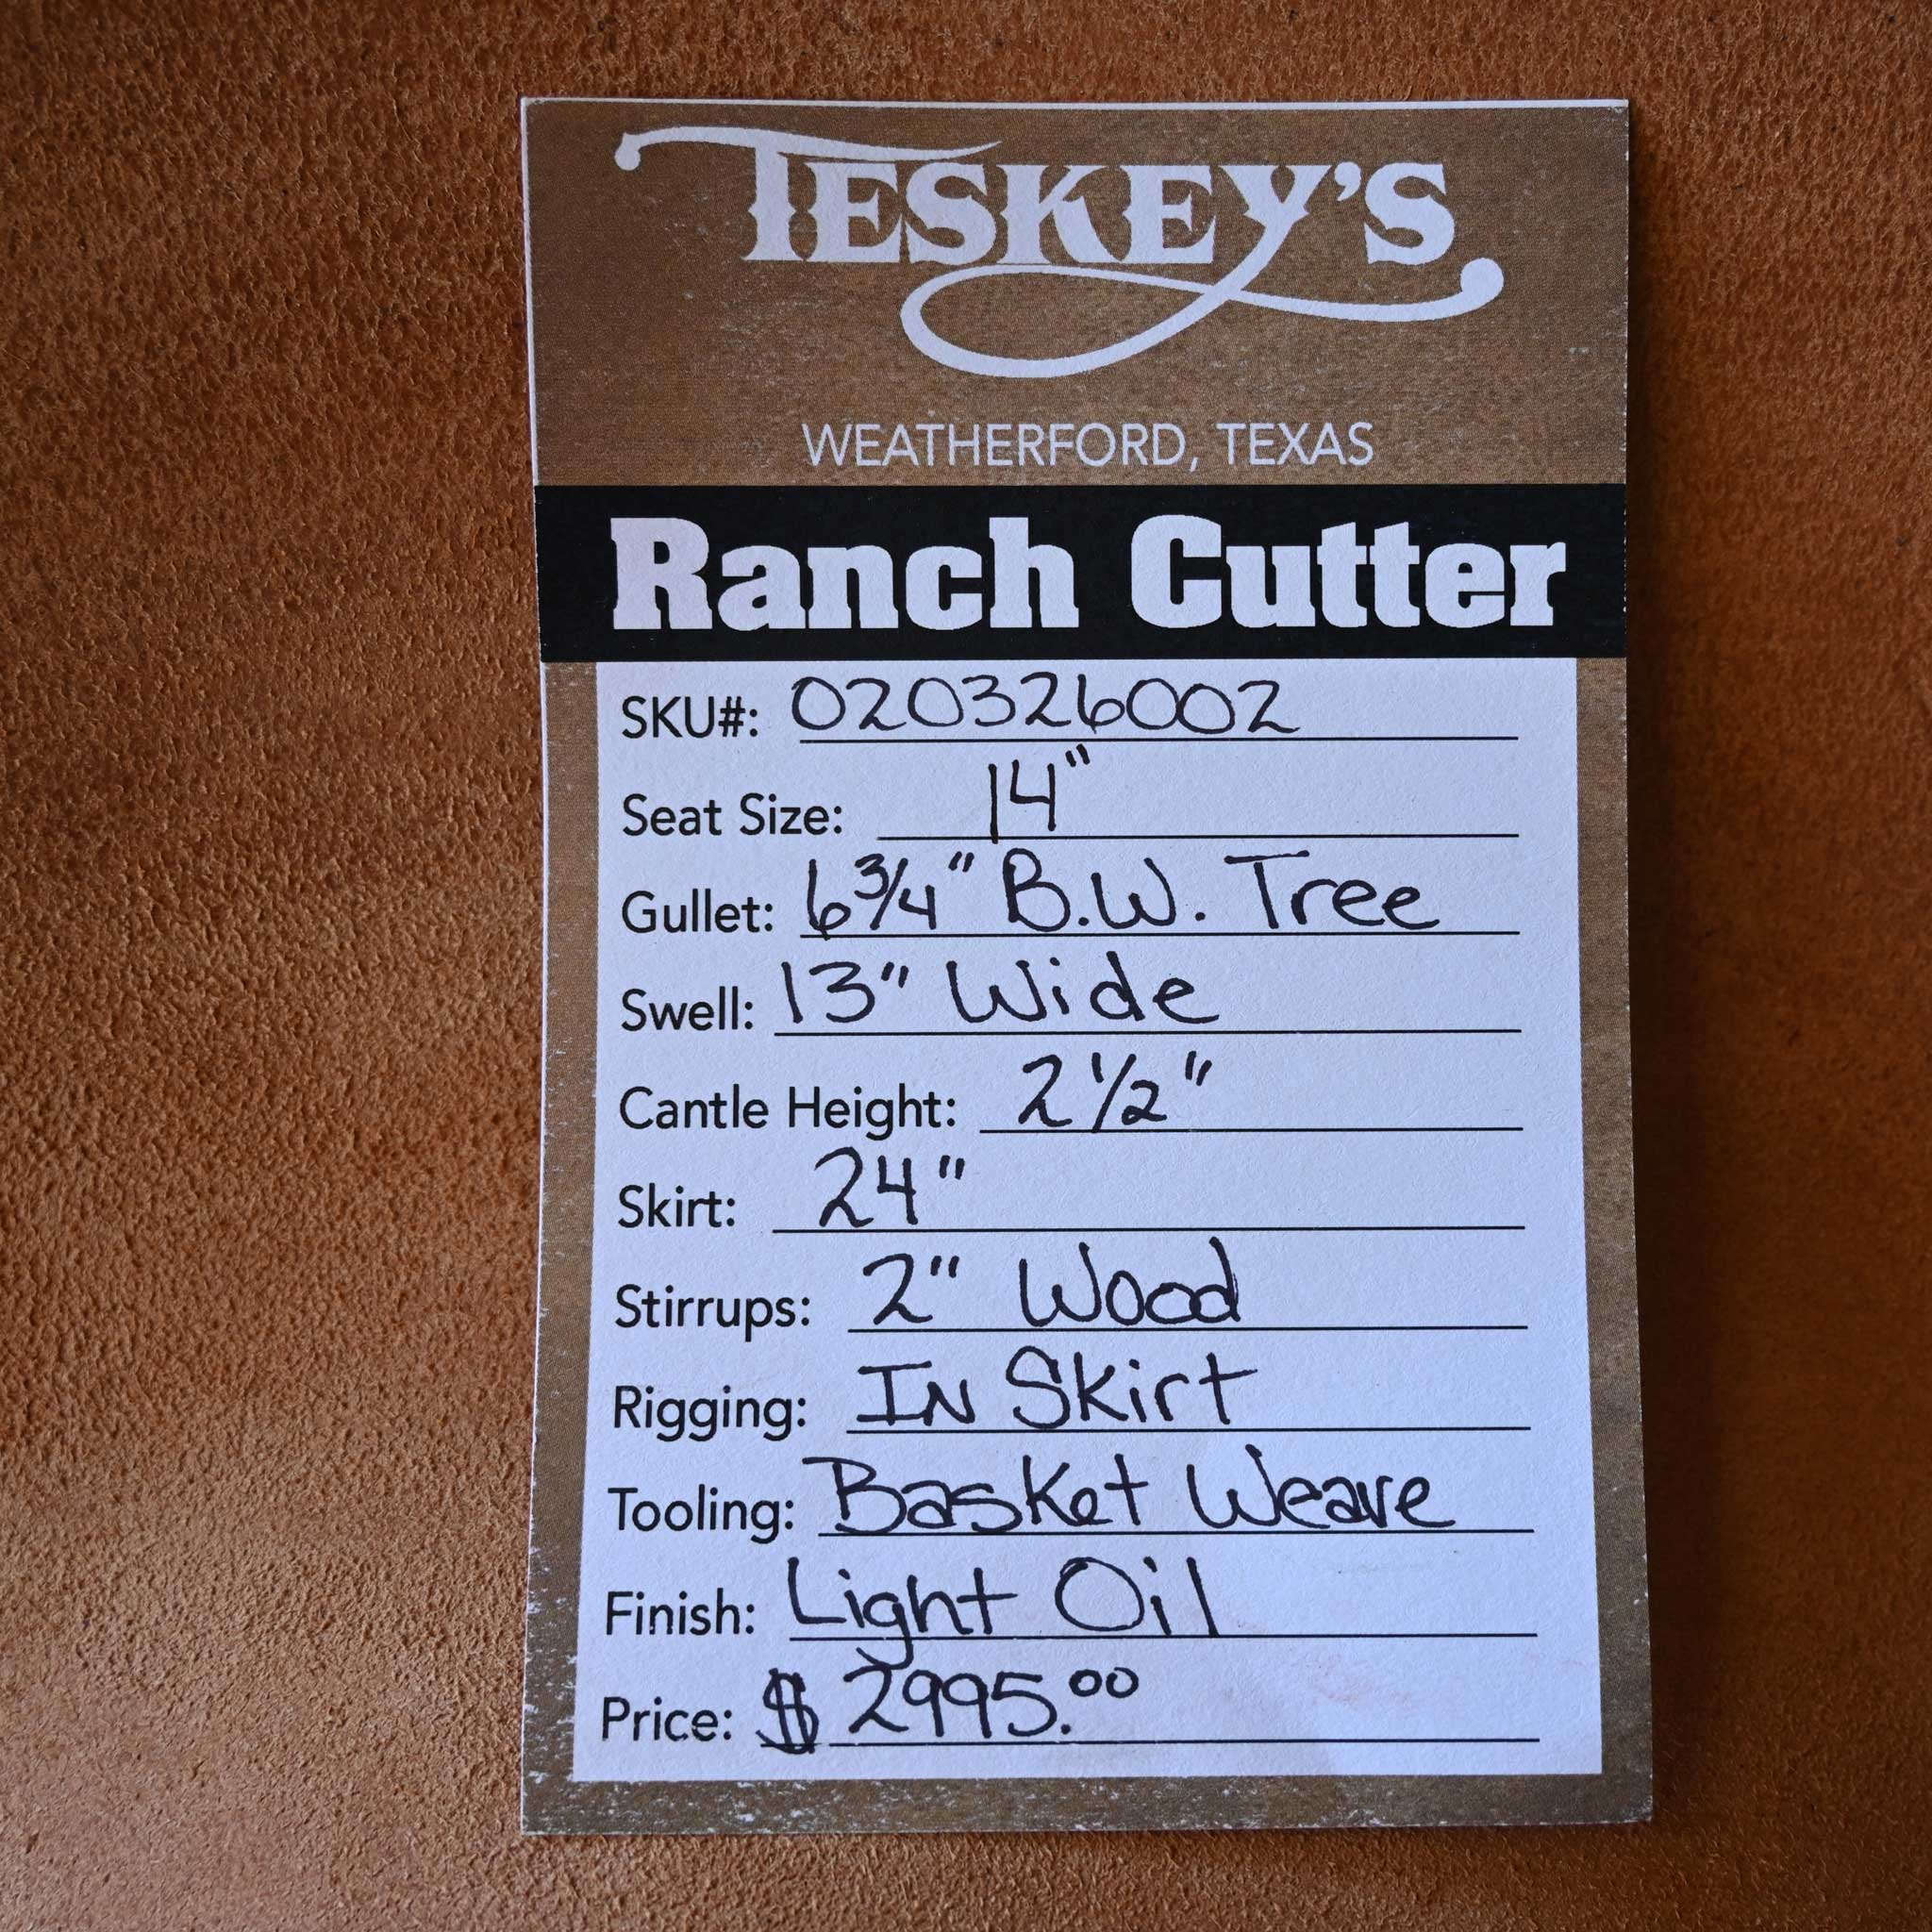 TESKEY'S
WEATHERFORD, TEXAS
Ranch Cutter
SKU#: 020326002
Seat Size: 14"
Gullet: 6 3/4" B.W. Tree
Swell: 13" Wide
Cantle Height: 2 1/2"
Skirt: 24"
Stirrups: 2" Wood
Rigging: IN Skirt
Tooling: Basket Weave
Finish: Light Oil
Price: $ 2995.00